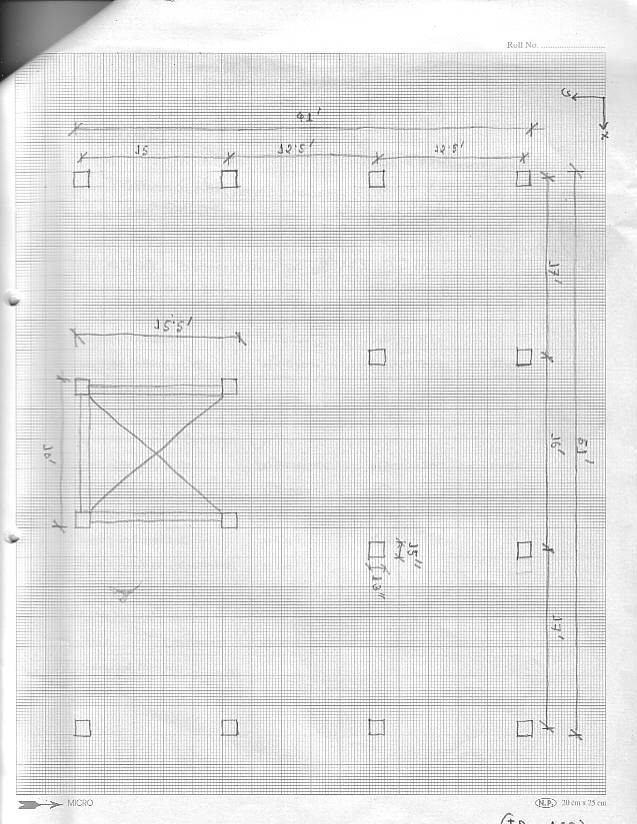 Roll No. ....................
y
x
41'
15
12.5'
12.5'
17'
15.5'
10'
16'
51'
15"
12"
17'
MICRO
N.P. 20 cm x 25 cm